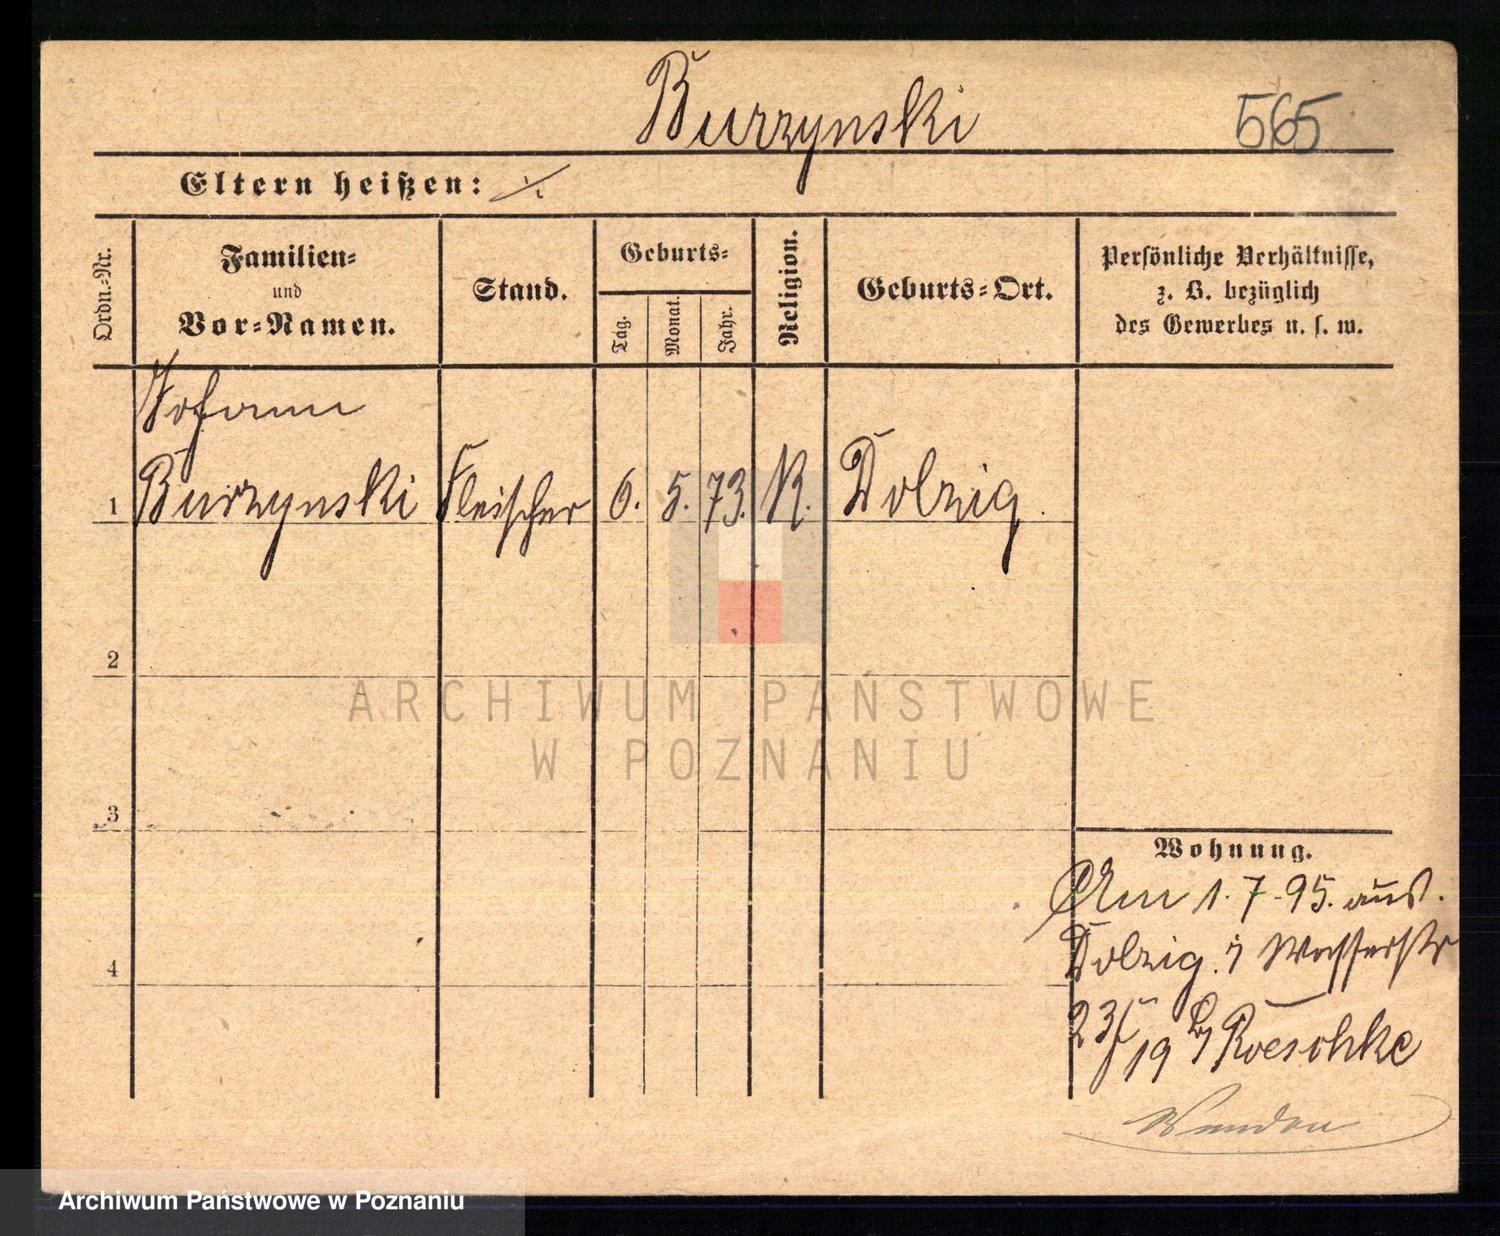 Burzynski 565
Eltern heißen: ·/.
Ordn.-Nr.
Familien-
und
Vor-Namen.
Stand.
Geburts-
Tag.
Monat.
Jahr.
Religion.
Geburts-Ort.
Persönliche Verhältnisse,
z. B. bezüglich
des Gewerbes u. s. w.
Johann
1 Burzynski Fleischer 6. 5. 73. K. Dolzig.
2
3
4
Wohnung.
Am 1.7.95. aus.
Dolzig. Wasserstr
23/19 Roeschke
ARCHIWUM PAŃSTWOWE
W POZNANIU
Archiwum Państwowe w Poznaniu